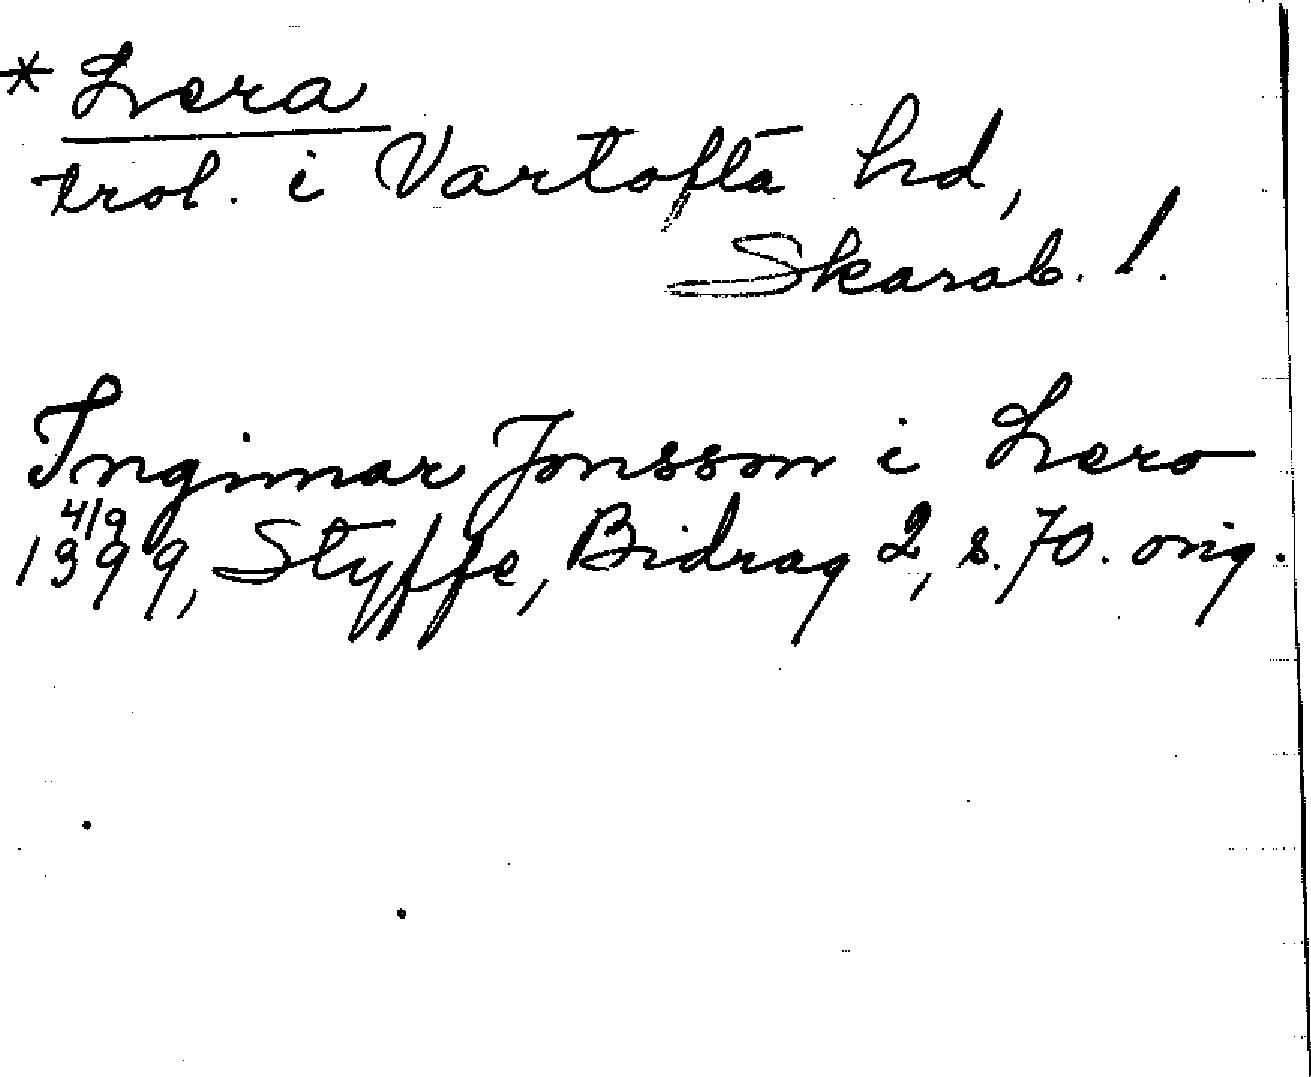 * Lera
trol. i Vartofta hd,
Skarab. l.
Ingimar Jonsson i Lero
4/9
1399, Styffe, Bidrag 2, s. 70. orig.